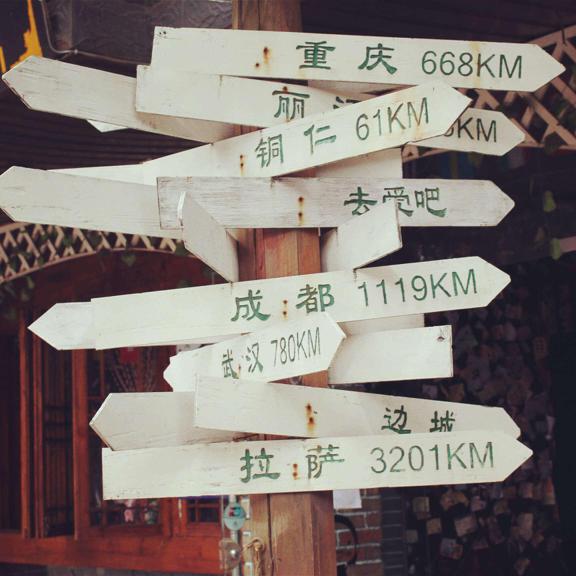 重庆 668KM
丽
KM
铜仁 61KM
去爱吧
成都 1119KM
武汉 780KM
边城
拉萨 3201KM